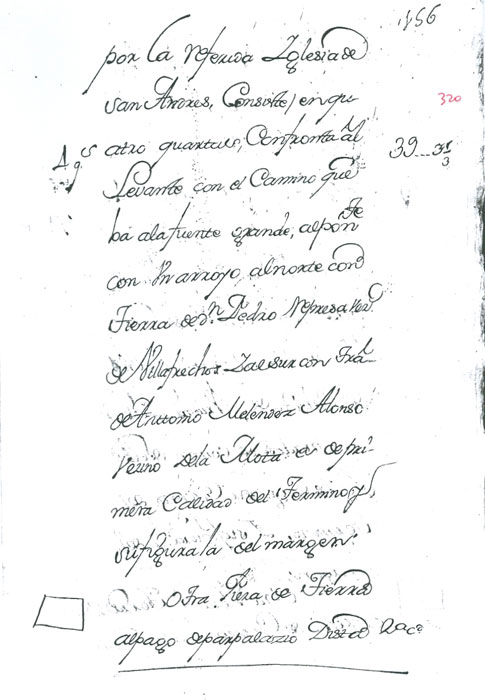 156
por la referida Iglesia de
San Andres, Consiste, en qu
320
atro quartas, Confronta al
39...31
3
Levante con el Camino que
ba a la fuente grande, alpon.te
con Un arroyo, al norte con
Tierra de D.n Pedro Represa Vec.o
de Villafrechos Zal sur con tra.
de Antonio Melendez Alonso
Vecino de la Mota es de pri-
mera Calidad del Termino, y
su figura la del margen.
Otra Pieza de Tierra
al pago de parpalazio Dista